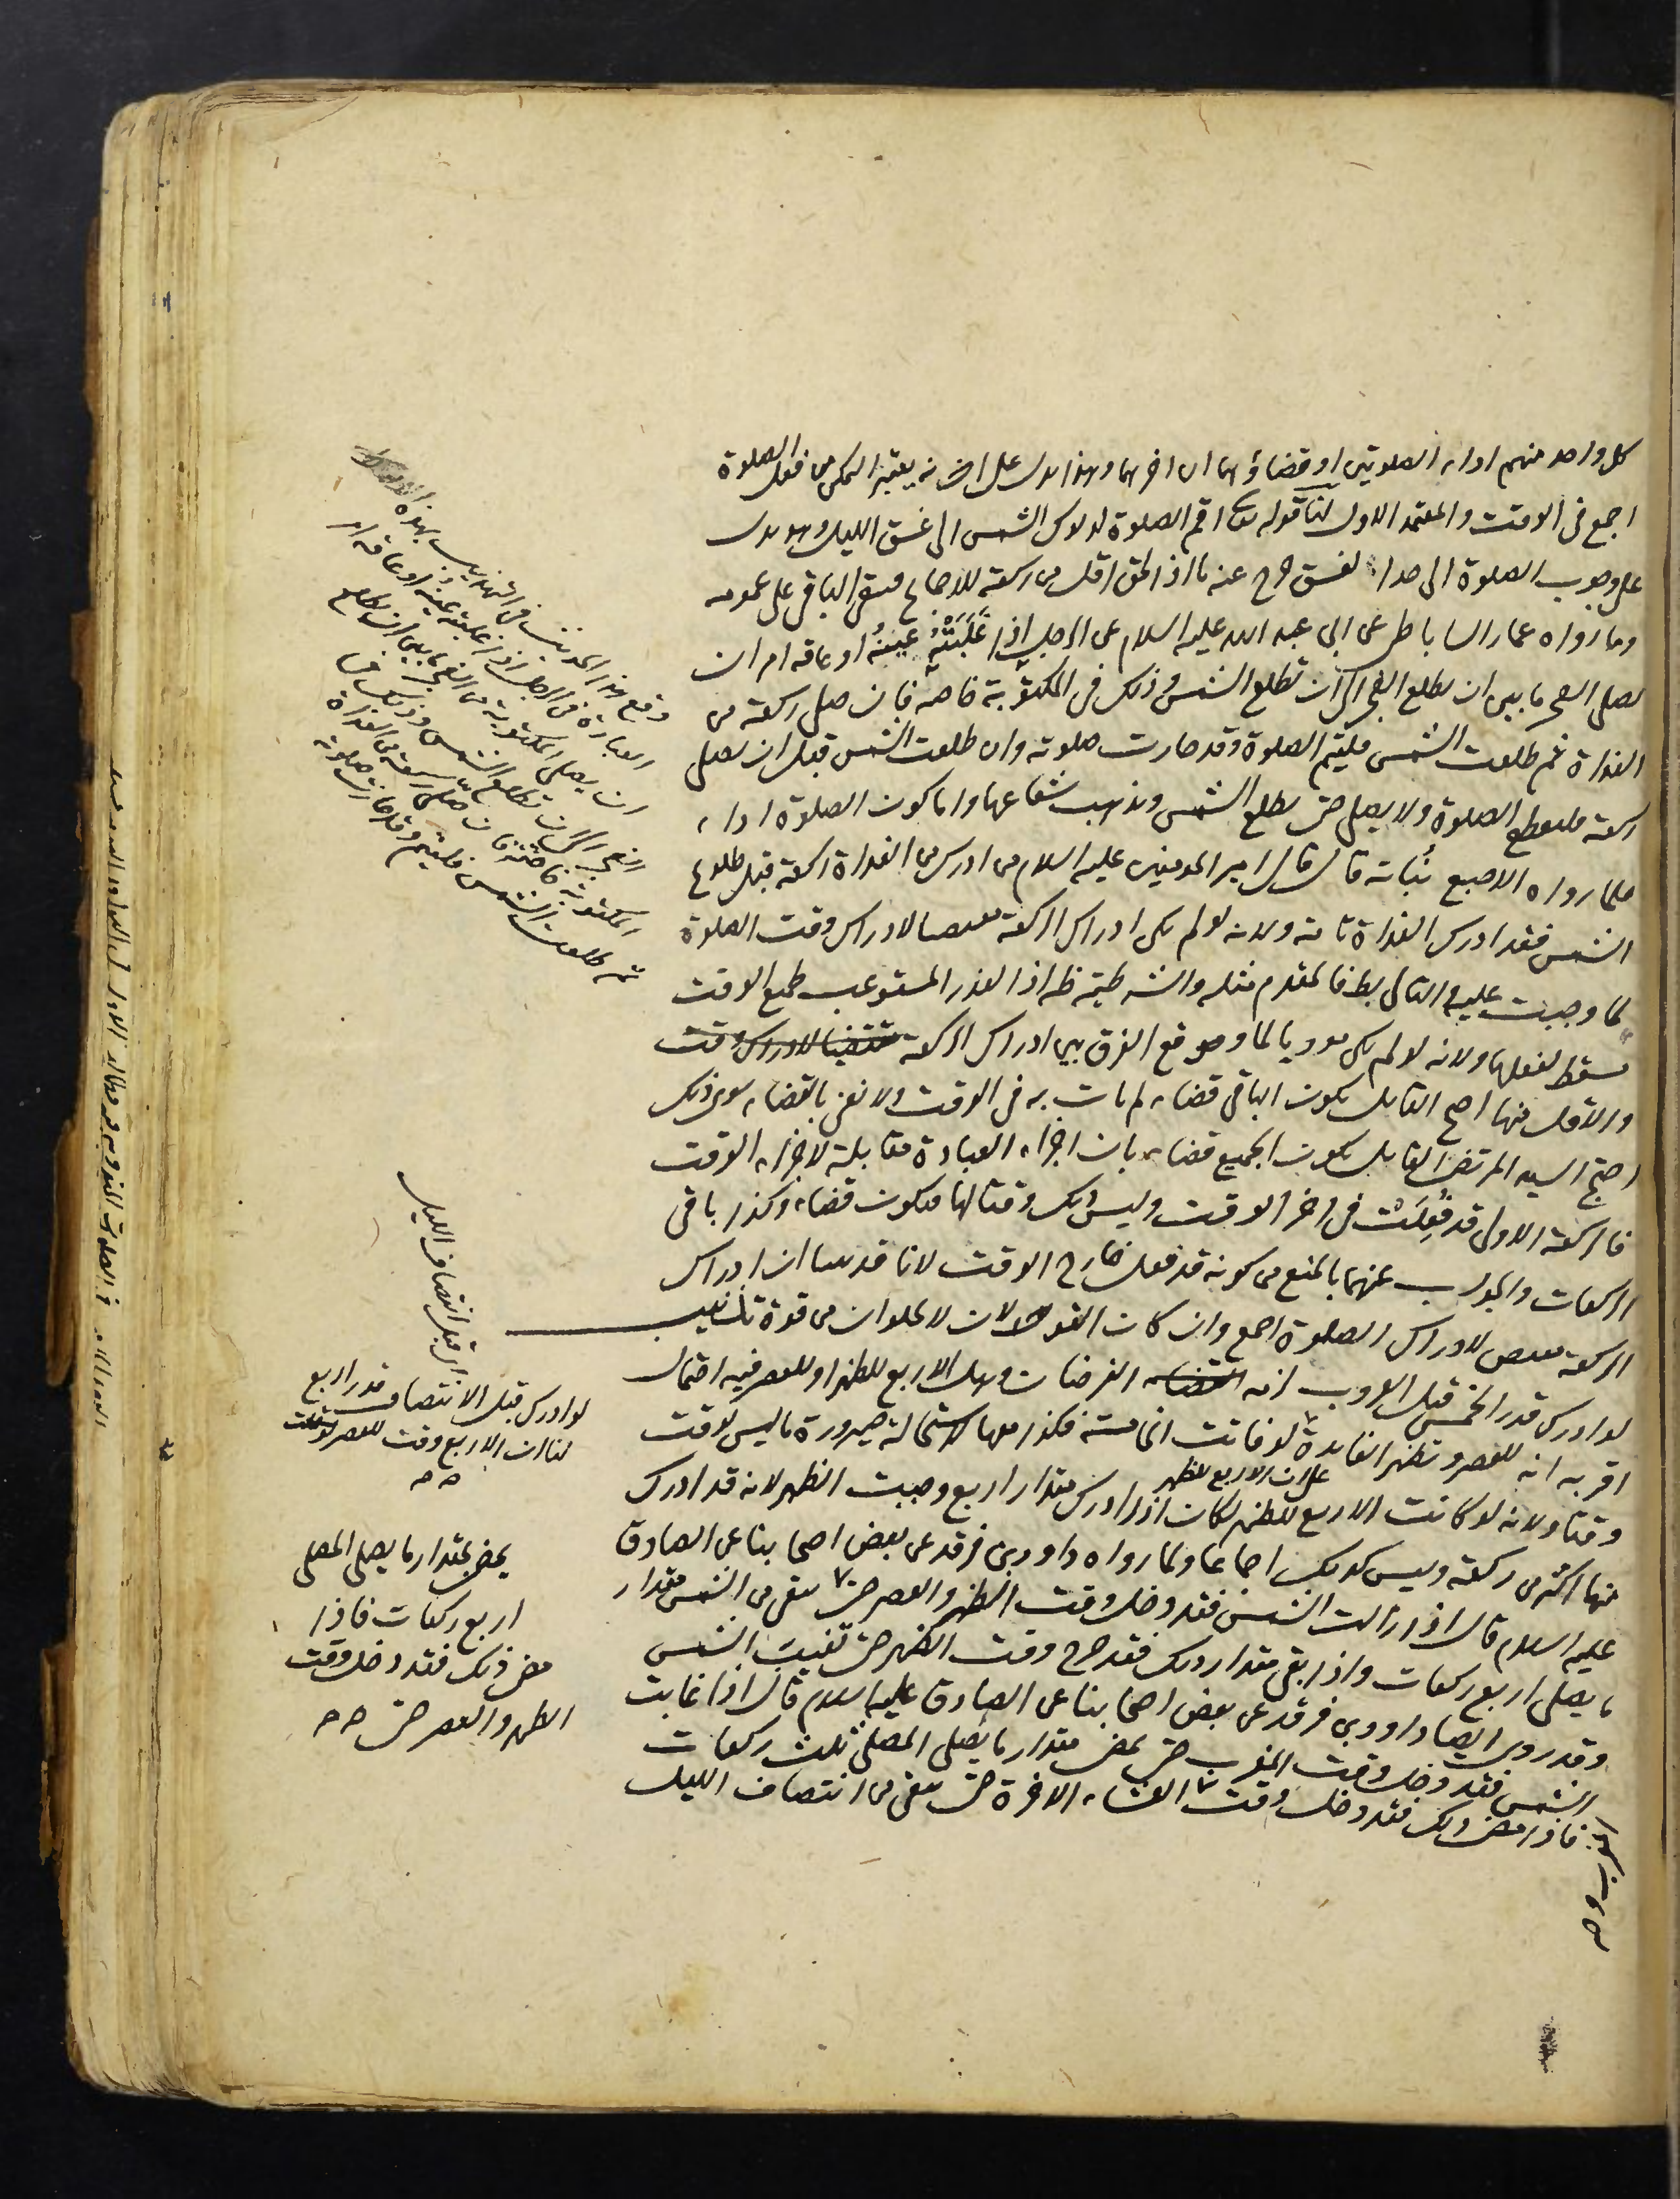 كل واحد منهم اداء الصلوتين او قضاؤهما ان اخرهما وهذا يدل على انه يعتبر التمكن من فعل الصلوة
اجمع في الوقت والمعتمد الاول لنا قوله تعالى اقم الصلوة لدلوك الشمس الى غسق الليل وهو يدل
على وجوب الصلوة الى هذا الغسق خرج عنه ما اذا لحق اقل من ركعة للاجماع فيبقى الباقي على عمومه
وما رواه عمار الساباطي عن ابي عبد الله عليه السلام عن الرجل اذا غلبته عينه او عاقه امر ان
يصلي الفجر ما بين ان يطلع الفجر الى ان تطلع الشمس وذلك في المكتوبة خاصة فان صلى ركعة من
الغداة ثم طلعت الشمس فليتم الصلوة وقد جازت صلوته وان طلعت الشمس قبل ان يصلي
ركعة فليقطع الصلوة ولا يصلي حتى تطلع الشمس ويذهب شعاعها واما كون الصلوة اداء
فلما رواه الاصبغ نباتة قال قال امير المؤمنين عليه السلام من ادرك من الغداة ركعة قبل طلوع
الشمس فقد ادرك الغداة تامة ولانه لو لم يكن ادراك الركعة مقتضيا لادراك وقت الصلوة
لما وجبت عليه والتالي بط فالمقدم مثله والشرطية ظه اذ العذر المستوعب لجميع الوقت
مسقط لفعلها ولانه لو لم يكن مؤديا لما وقع الفرق بين ادراك الركعة مقتضيا لادراك وقت
والاقل منها احتج القايل بكون الباقي قضاء لم يات به في الوقت ولا نعني بالقضاء سوى ذلك
احتج السيد المرتضى القايل بكون الجميع قضاء بان اجزاء العبادة مقابلة لاجزاء الوقت
فالركعة الاولى قد فعلت في اخر الوقت وليس ذلك وقتا لها فتكون قضاء وكذا باقي
الركعات والجواب عنهما بالمنع من كونه قد فعل خارج الوقت لانا قد بينا ان ادراك
الركعة مقتض لادراك الصلوة اجمع وان كان القولان لا يخلوان من قوة تذنيب
لو ادرك قدر الخمس قبل الغروب لزمه الفرضان وهل الاربع للظهر او للعصر فيه احتمال
اقربه انه للعصر وتظهر الفايدة لو فاتت الخامسة فكذا معها لاستحالة صيرورة ما ليس بوقت
على ان الاربع للظهر
وقتا ولانه لو كانت الاربع للظهر لكان اذا ادرك مقدار اربع وجبت الظهر لانه قد ادرك
منها اكثر من ركعة وليس كذلك اجماعا ولما رواه داود بن فرقد عن بعض اصحابنا عن الصادق
عليه السلام قال اذا زالت الشمس فقد دخل وقت الظهر والعصر حتى يبقى من الشمس مقدار
ما يصلي اربع ركعات واذا بقي مقدار ذلك فقد خرج وقت الظهر حتى تغيب الشمس
وقد روى ايضا داود بن فرقد عن بعض اصحابنا عن الصادق عليه السلام قال اذا غابت
الشمس فقد دخل وقت المغرب حتى يمضي مقدار ما يصلي المصلي ثلث ركعات
فاذا مضى ذلك فقد دخل وقت العشاء الاخرة حتى يبقى من انتصاف الليل
وقع هذا الحديث في التهذيب بهذه
العبارة في الرجل اذا غلبته عينه او عاقه امر
ان يصلي المكتوبة من الفجر ما بين ان يطلع
الفجر الى ان تطلع الشمس وذلك في
المكتوبة خاصة فان صلى ركعة من الغداة
ثم طلعت الشمس فليتم وقد جازت صلوته
اي قبل انتصاف الليل
لو ادرك قبل الانتصاف قدر اربع
لنا ان الاربع وقت للعصر
يمضي بمقدار ما يصلي المصلي
اربع ركعات فاذا
مضى ذلك فقد دخل وقت
الظهر والعصر حتى